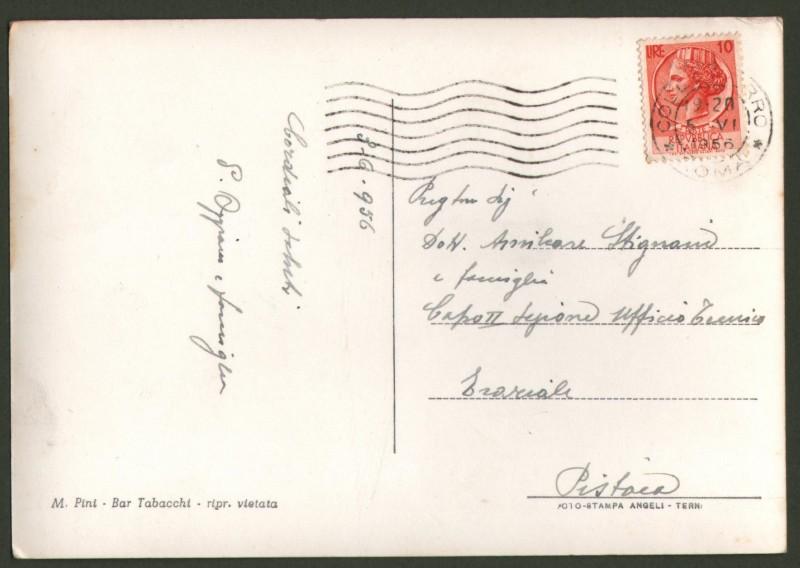 LIRE 10
19.20
VI
1956
ROMA
3-6-956
Cordiali saluti
e famiglia
Dott. Amilcare Stignani
e famiglia
Capo II Sezione Ufficio Tecnico
Erariale
Pistoia
M. Pini - Bar Tabacchi - ripr. vietata
FOTO-STAMPA ANGELI - TERNI